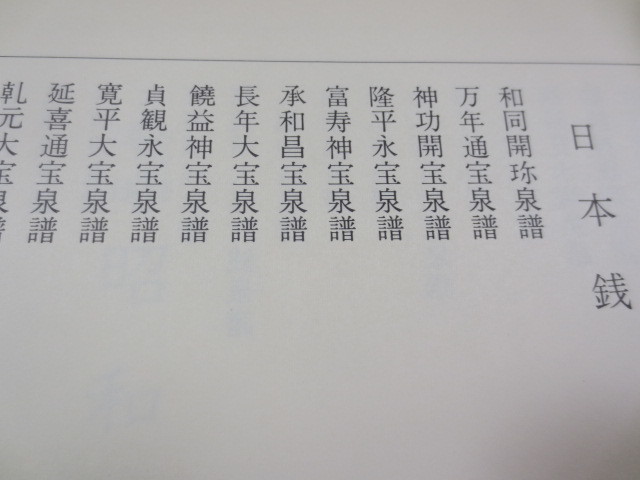 日本銭
和同開珎泉譜
万年通宝泉譜
神功開宝泉譜
隆平永宝泉譜
富寿神宝泉譜
承和昌宝泉譜
長年大宝泉譜
饒益神宝泉譜
貞観永宝泉譜
寛平大宝泉譜
延喜通宝泉譜
乹元大宝泉譜